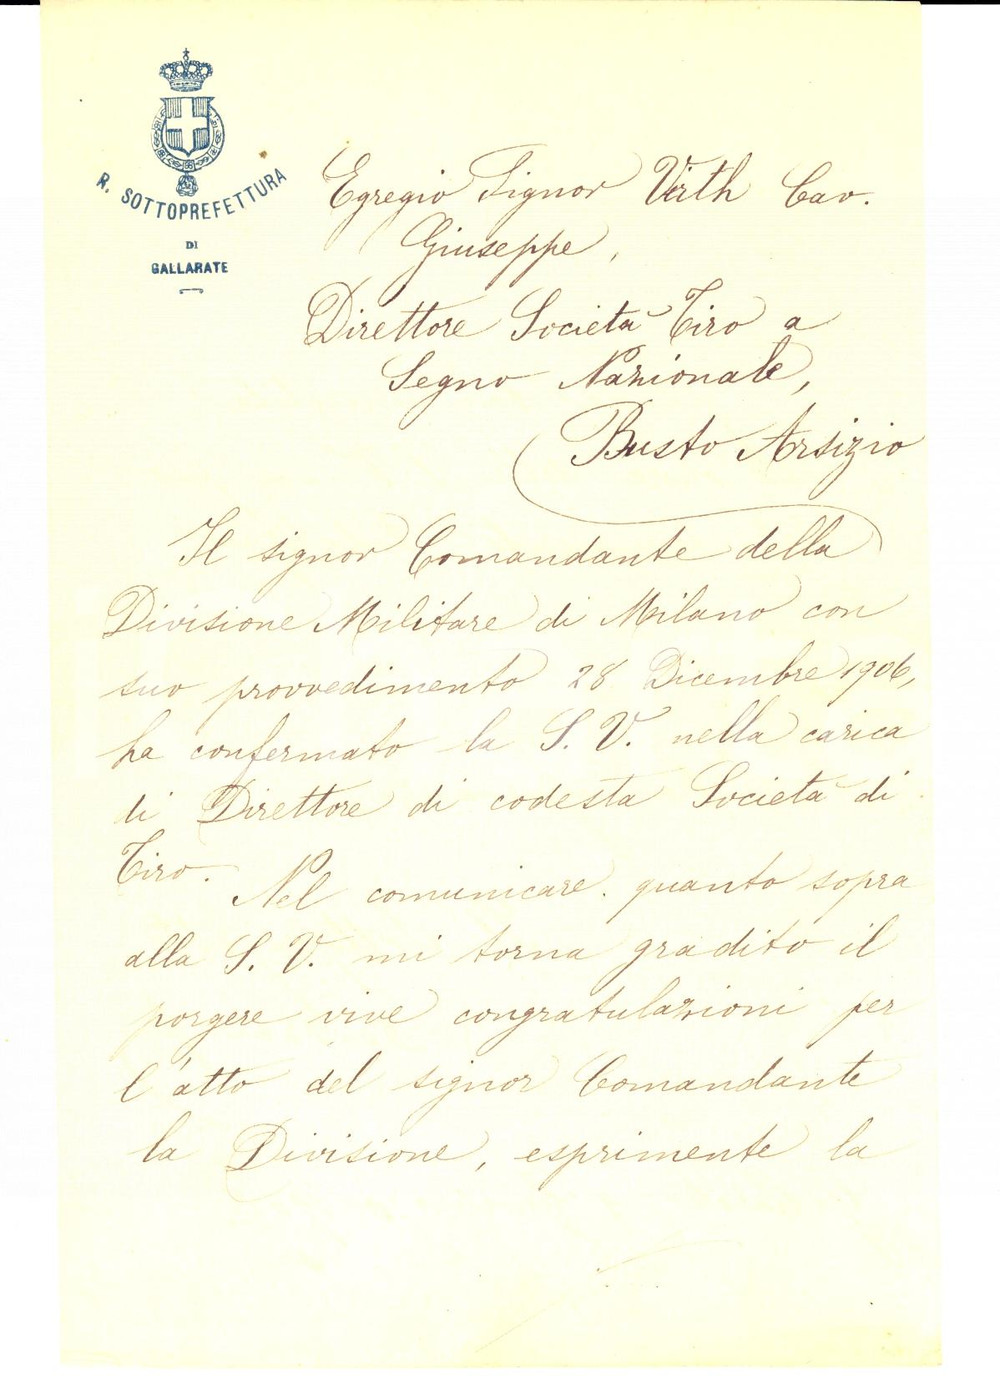 R. SOTTOPREFETTURA
DI
GALLARATE
Egregio Signor Virth Cav.
Giuseppe,
Direttore Società Tiro a
Segno Nazionale,
Busto Arsizio
Il signor Comandante della
Divisione Militare di Milano con
suo provvedimento 28 Dicembre 1906,
ha confermato la S. V. nella carica
di Direttore di codesta Società di
Tiro.
Nel comunicare quanto sopra
alla S. V. mi torna gradito il
porgere vive congratulazioni per
l'atto del signor Comandante
la Divisione, esprimente la